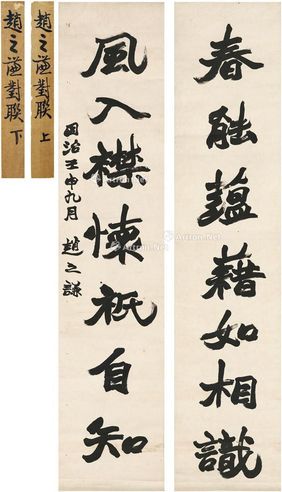 春能蕴藉如相識
風入襟懷祇自知
同治壬申九月 趙之謙
趙之謙對聯 上
趙之謙對聯 下